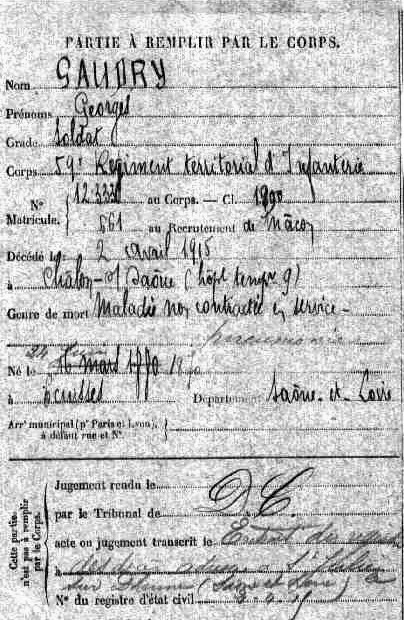 PARTIE À REMPLIR PAR LE CORPS.
Nom GAUDRY
Prénoms Georges
Grade Soldat
Corps 59e Régiment territorial d'Infanterie
N° Matricule. 12.333 au Corps. — Cl. 1890
861 au Recrutement de Mâcon
Décédé le 2 avril 1915
à Châlon-s/Saône (hôpl tempre 9)
Genre de mort Maladie non contractée en service
pneumonie
Né le 16 mars 1870
à Ecuisses Département Saône-et-Loire
Arrt municipal (pr Paris et Lyon),
à défaut rue et N°.
Cette partie n'est pas à remplir par le Corps.
Jugement rendu le
par le Tribunal de D.C.
acte ou jugement transcrit le
à
(Saône et Loire)
N° du registre d'état civil